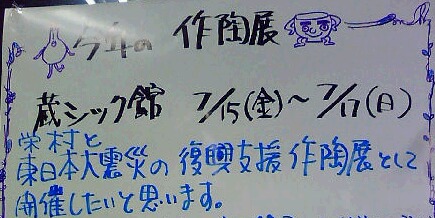 今年の 作陶展
蔵シック館 7/15(金)～7/17(日)
栄村と
東日本大震災の復興支援作陶展として
開催したいと思います。